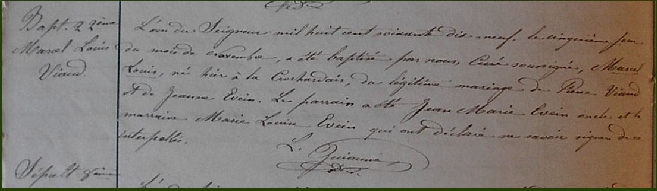 Bapt. 22ème
Marcel Louis
Viaud.
L'an du Seigneur mil huit cent soixante dix-neuf, le cinquième jour
du mois de novembre, a été baptisé par nous, Curé soussigné, Marcel
Louis, né hier à la du légitime mariage de Pierre Viaud
et de Jeanne Evein. Le parrain a été Jean Marie Evein oncle et la
marraine Marie Louise Evein qui ont déclaré ne savoir signer de ce
interpellés.
Sépult